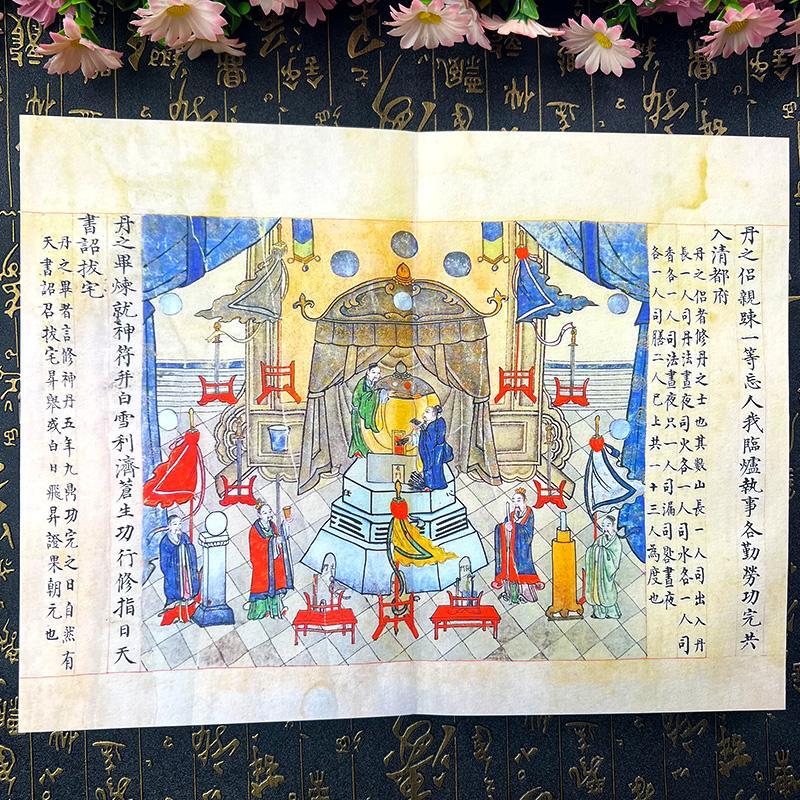 丹之侶親踈一等忘人我臨爐執事各勤勞功完共
入清都府
丹之侶者修丹之士也其數山長一人司出入丹
長一人司丹法晝夜司火各一人司水各一人司
者各一人司法晝夜只一人司漏司晝夜
各一人司膳二人已上共一十三人為度也
丹之畢煉就神符并白雪利濟蒼生功行修指日天
書詔拔宅
丹之畢者言修神丹五年九鼎功完之日自然有
天書詔召拔宅昇舉或白日飛昇證果朝元也